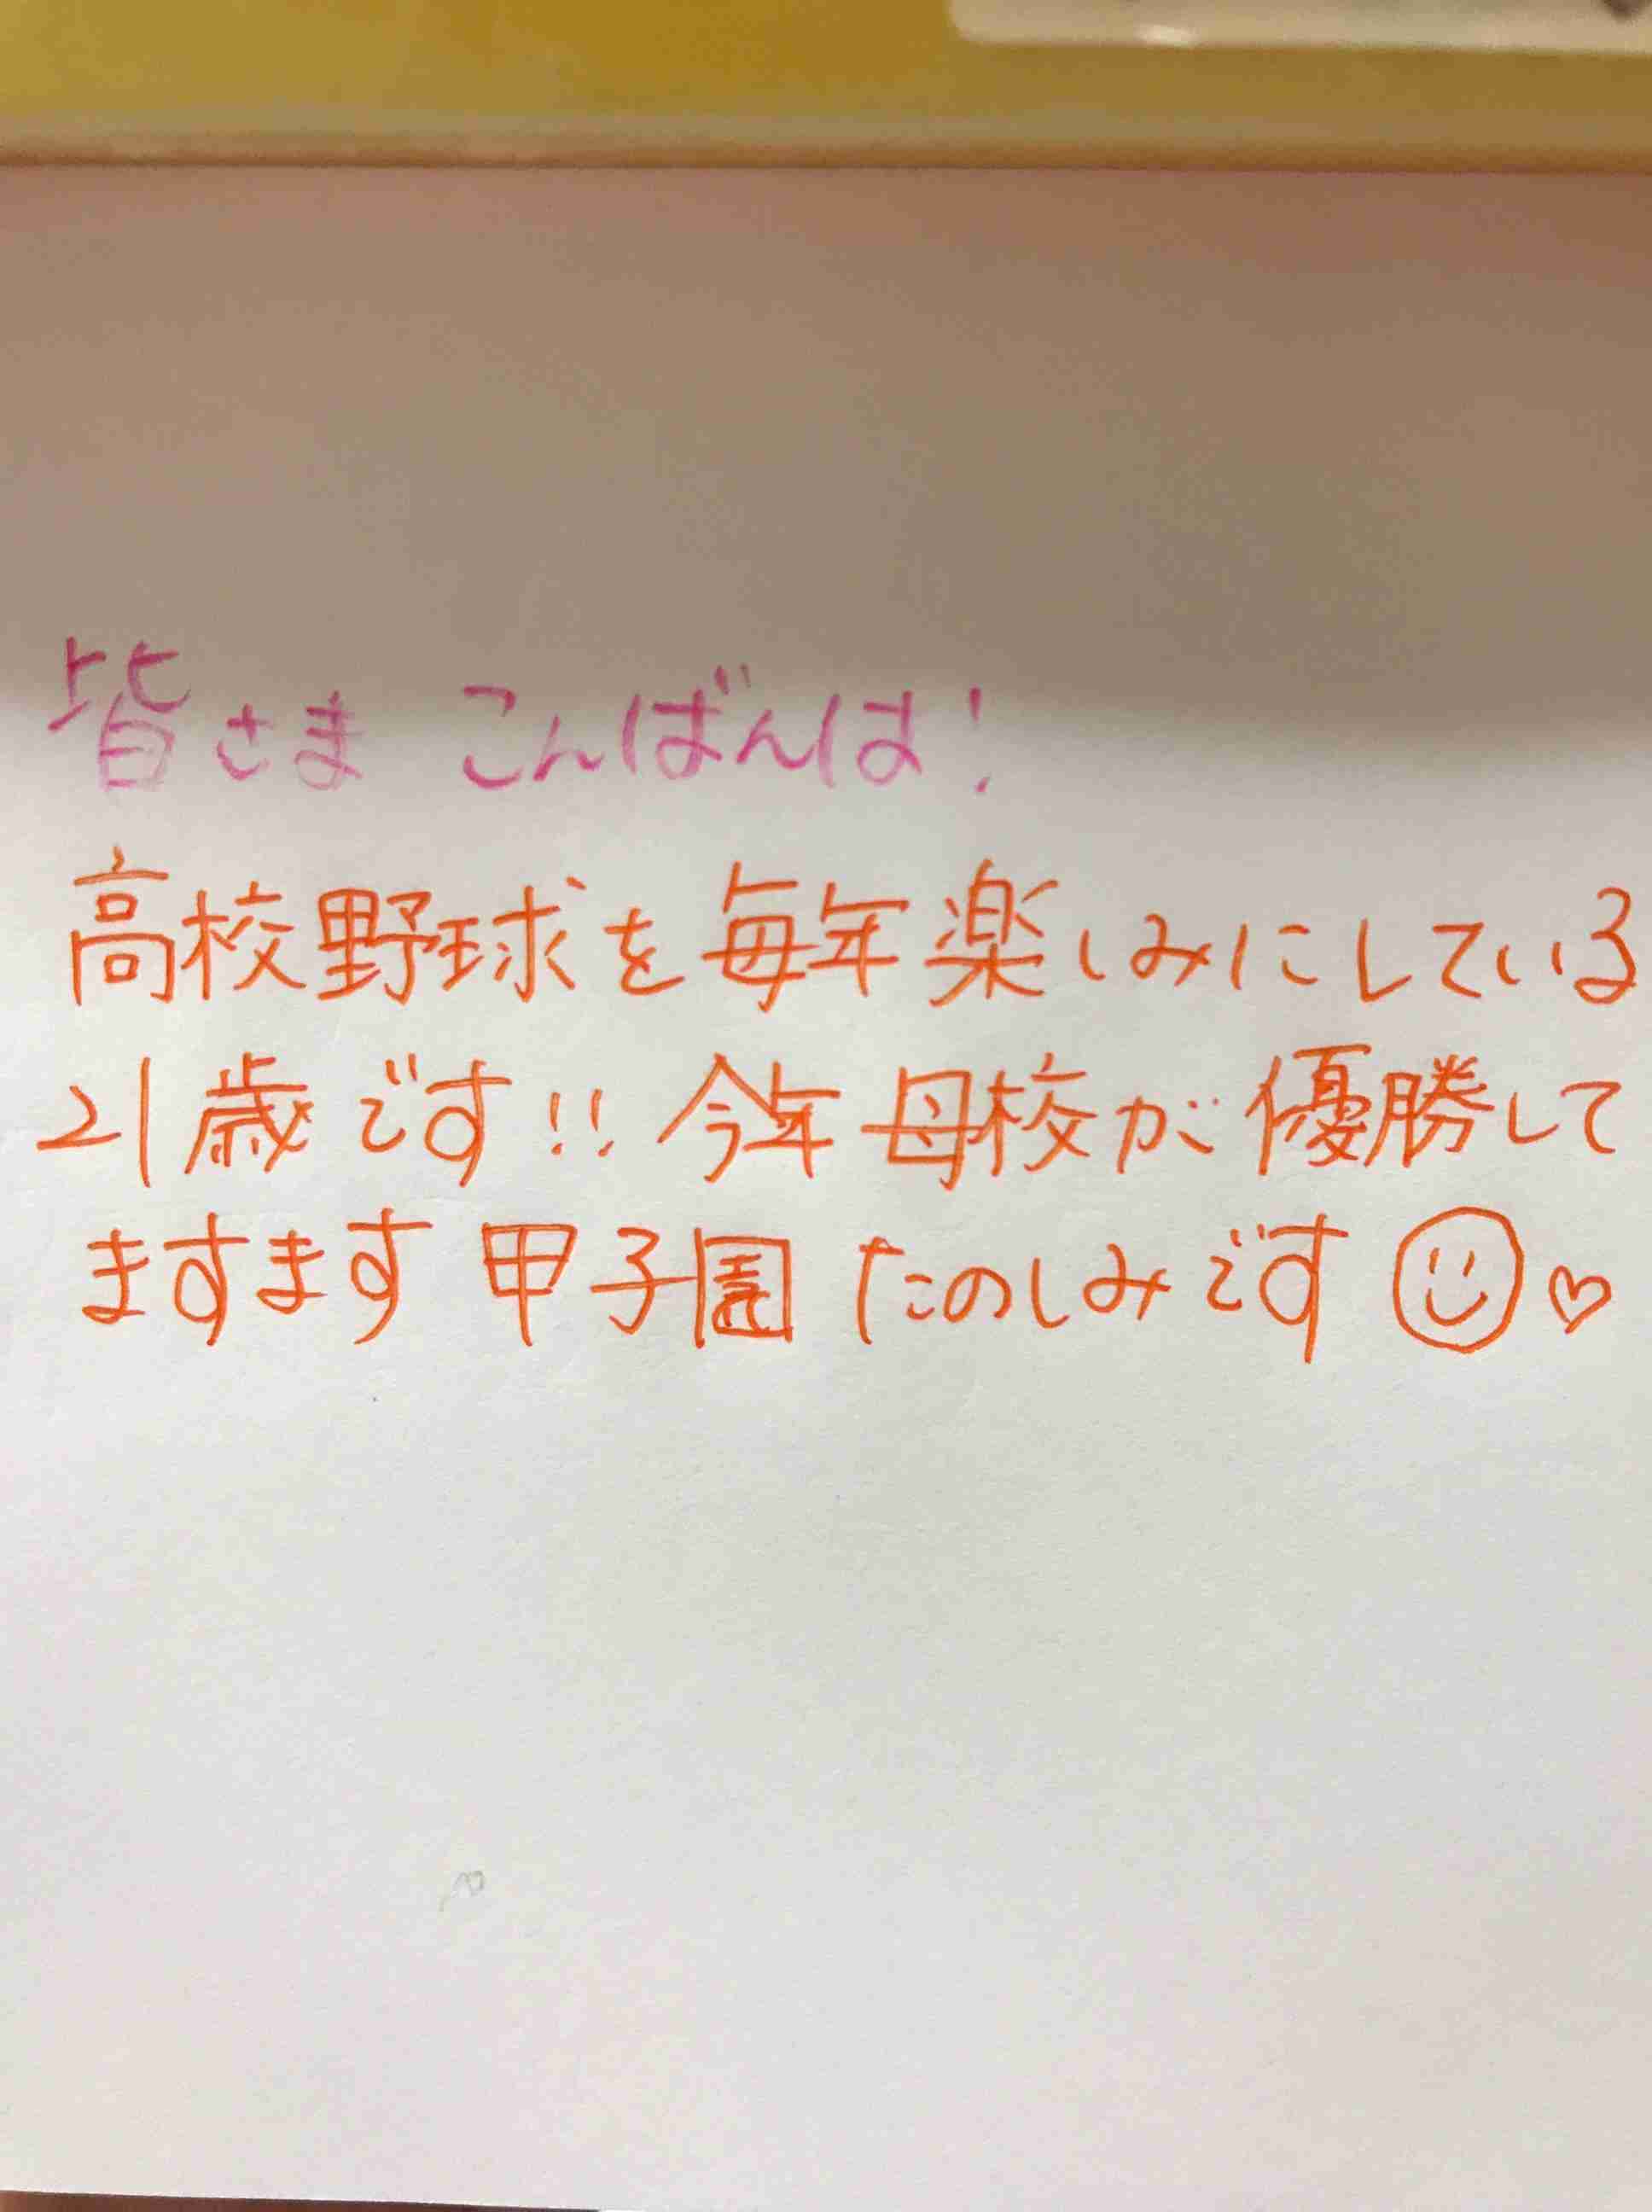 皆さま こんばんは!
高校野球を毎年楽しみにしている
21歳です!! 今年 母校が優勝して
ますます 甲子園 たのしみです☺♡